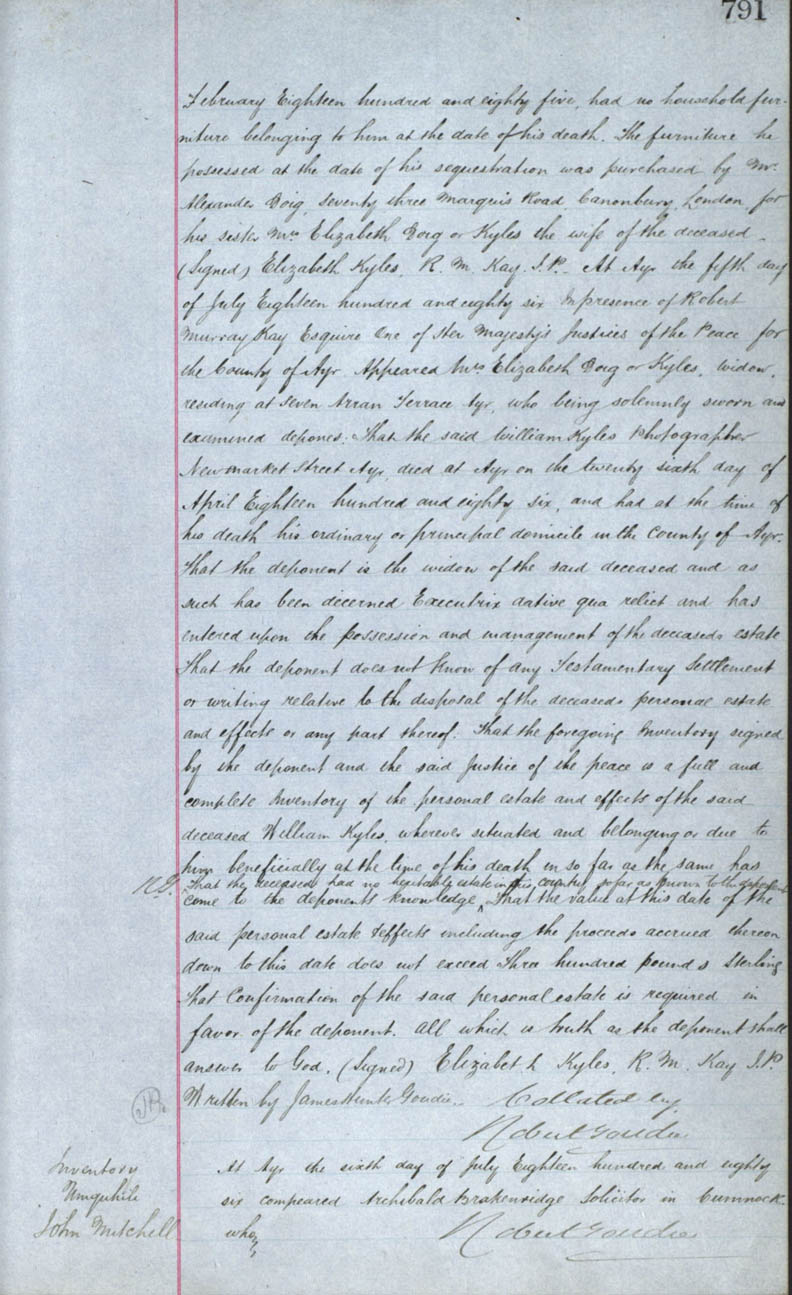 791
February Eighteen hundred and eighty five, had no household fur-
niture belonging to him at the date of his death. The furniture he
possessed at the date of his sequestration was purchased by Mr.
Alexander Doig, Seventy three Marquis Road Canonbury, London, for
his sister Mrs Elizabeth Doig or Kyles the wife of the deceased.
(Signed) Elizabeth Kyles, R. M. Kay. J.P. At Ayr the fifth day
of July Eighteen hundred and eighty six In presence of Robert
Murray Kay Esquire One of Her Majesty's Justices of the Peace for
the County of Ayr Appeared Mrs Elizabeth Doig or Kyles, widow,
residing at Seven Arran Terrace Ayr, who being solemnly sworn and
examined depones: That the said William Kyles Photographer
Newmarket Street Ayr, died at Ayr on the twenty sixth day of
April Eighteen hundred and eighty six, and had at the time of
his death his ordinary or principal domicile in the County of Ayr.
That the deponent is the widow of the said deceased and as
such has been decerned Executrix dative qua relict and has
entered upon the possession and management of the deceaseds estate
That the deponent does not know of any Testamentary Settlement
or writing relative to the disposal of the deceaseds personal estate
and effects or any part thereof. That the foregoing Inventory signed
by the deponent and the said Justice of the peace is a full and
complete Inventory of the personal estate and effects of the said
deceased William Kyles, wherever situated and belonging or due to
him beneficially at the time of his death in so far as the same has
That the deceased had no heritable estate in this country so far as known to the deponent
come to the deponents knowledge, That the value at this date of the
said personal estate & effects including the proceeds accrued thereon
down to this date does not exceed Three hundred pounds Sterling
That Confirmation of the said personal estate is required in
favor of the deponent. All which is truth as the deponent shall
answer to God. (Signed) Elizabeth Kyles, R. M. Kay J.P.
Written by James Hunter Goudie. Collated by
Robert Goudie
Inventory
Umquhile
John Mitchell
At Ayr the sixth day of July Eighteen hundred and eighty
six compeared Archibald Brakenridge Solicitor in Cumnock
who,
Robert Goudie